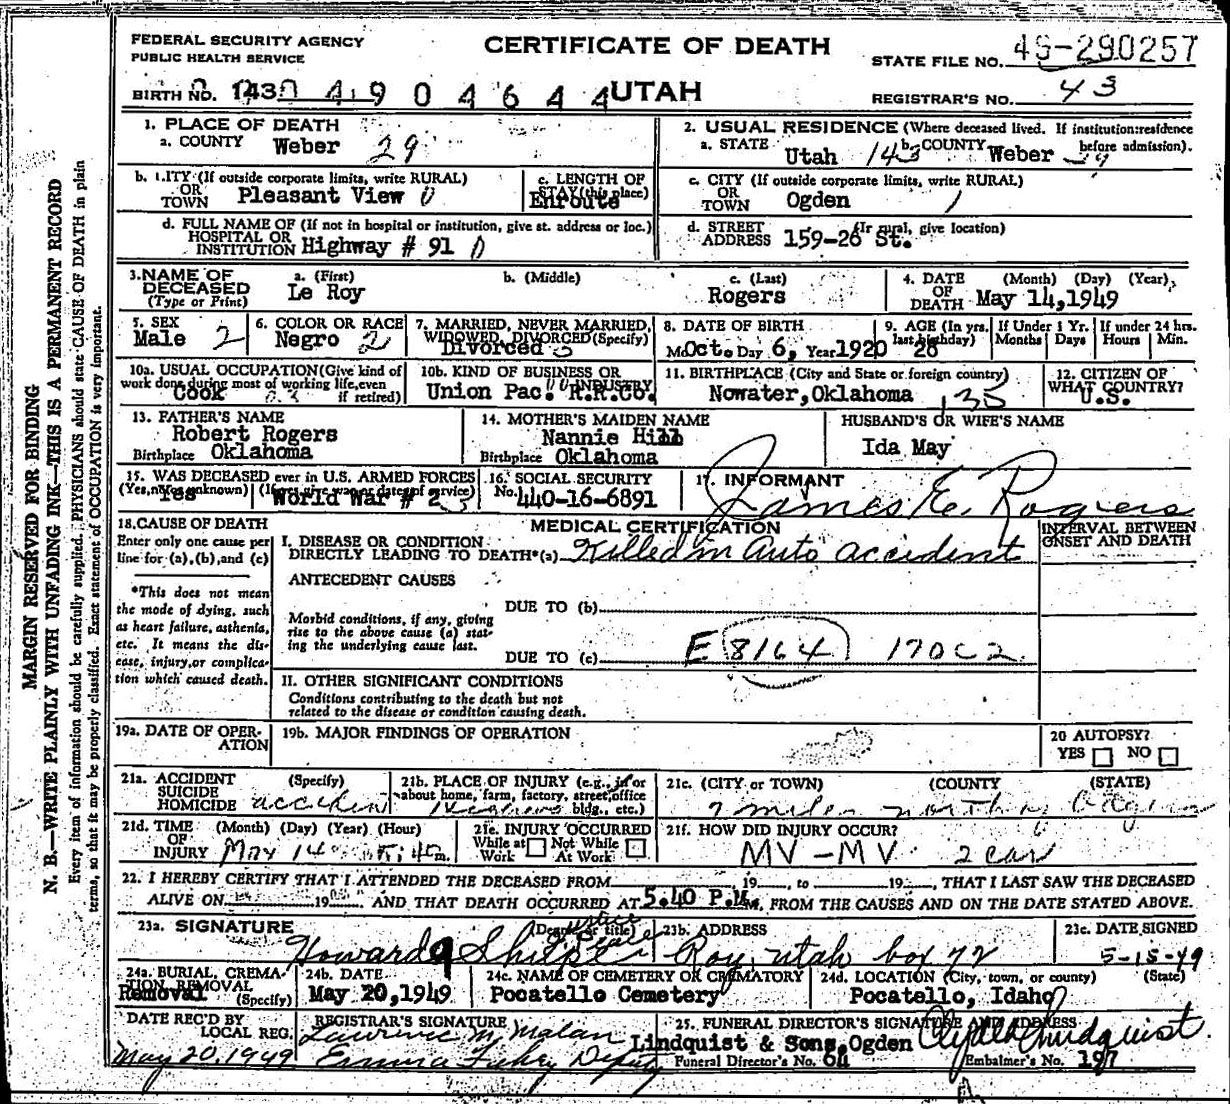 FEDERAL SECURITY AGENCY
PUBLIC HEALTH SERVICE
CERTIFICATE OF DEATH
STATE FILE NO. 49-290257
BIRTH NO. 143 4904644 UTAH
REGISTRAR'S NO. 43
1. PLACE OF DEATH
a. COUNTY Weber 29
2. USUAL RESIDENCE (Where deceased lived. If institution: residence before admission).
a. STATE Utah 143 b. COUNTY Weber 29
b. CITY (If outside corporate limits, write RURAL)
OR TOWN Pleasant View 0
c. LENGTH OF STAY (this place) Enroute
c. CITY (If outside corporate limits, write RURAL)
OR TOWN Ogden 1
d. FULL NAME OF (If not in hospital or institution, give st. address or loc.)
HOSPITAL OR INSTITUTION Highway # 91 0
d. STREET (If rural, give location)
ADDRESS 159-26 St.
3. NAME OF DECEASED (Type or Print)
a. (First) Le Roy
b. (Middle)
c. (Last) Rogers
4. DATE OF DEATH (Month) (Day) (Year)
May 14,1949
5. SEX Male 2
6. COLOR OR RACE Negro 2
7. MARRIED, NEVER MARRIED, WIDOWED, DIVORCED (Specify) Divorced
8. DATE OF BIRTH
Mo Oct. Day 6, Year 1920
9. AGE (In yrs. last birthday) 28
If Under 1 Yr. Months Days
If under 24 hrs. Hours Min.
10a. USUAL OCCUPATION (Give kind of work done during most of working life, even if retired) Cook
10b. KIND OF BUSINESS OR INDUSTRY Union Pac. R.R.Co.
11. BIRTHPLACE (City and State or foreign country)
Nowater, Oklahoma 135
12. CITIZEN OF WHAT COUNTRY? U.S.
13. FATHER'S NAME
Robert Rogers
Birthplace Oklahoma
14. MOTHER'S MAIDEN NAME
Nannie Hill
Birthplace Oklahoma
HUSBAND'S OR WIFE'S NAME
Ida May
15. WAS DECEASED ever in U.S. ARMED FORCES
(Yes, no or unknown) (If yes, give war or dates of service)
Yes World War # 2
16. SOCIAL SECURITY
No. 440-16-6891
17. INFORMANT
James E. Rogers
18. CAUSE OF DEATH
Enter only one cause per line for (a), (b), and (c)
*This does not mean the mode of dying, such as heart failure, asthenia, etc. It means the disease, injury, or complication which caused death.
MEDICAL CERTIFICATION
INTERVAL BETWEEN ONSET AND DEATH
I. DISEASE OR CONDITION
DIRECTLY LEADING TO DEATH*(a) Killed in auto accident
ANTECEDENT CAUSES
Morbid conditions, if any, giving rise to the above cause (a) stating the underlying cause last.
DUE TO (b)
DUE TO (c) E 8164 170C2
II. OTHER SIGNIFICANT CONDITIONS
Conditions contributing to the death but not related to the disease or condition causing death.
19a. DATE OF OPERATION
19b. MAJOR FINDINGS OF OPERATION
20 AUTOPSY?
YES NO
21a. ACCIDENT SUICIDE HOMICIDE (Specify) accident
21b. PLACE OF INJURY (e.g., in or about home, farm, factory, street, office bldg., etc.)
21c. (CITY or TOWN) (COUNTY) (STATE)
7 miles north of Ogden
21d. TIME OF INJURY (Month) (Day) (Year) (Hour)
May 14 5:40 m.
21e. INJURY OCCURRED
While at Work Not While At Work
21f. HOW DID INJURY OCCUR?
MV - MV 2 car
22. I HEREBY CERTIFY THAT I ATTENDED THE DECEASED FROM , 19 , to 19 , THAT I LAST SAW THE DECEASED
ALIVE ON 19 , AND THAT DEATH OCCURRED AT 5.40 P.M., FROM THE CAUSES AND ON THE DATE STATED ABOVE.
23a. SIGNATURE (Degree or title) Justice Peace
Howard
23b. ADDRESS
Roy, Utah box 72
23c. DATE SIGNED
5-15-49
24a. BURIAL, CREMATION, REMOVAL (Specify) Removal
24b. DATE
May 20,1949
24c. NAME OF CEMETERY OR CREMATORY
Pocatello Cemetery
24d. LOCATION (City, town, or county) (State)
Pocatello, Idaho
DATE REC'D BY LOCAL REG.
May 20, 1949
REGISTRAR'S SIGNATURE
Lawrence M. Malan
Emma Deputy
25. FUNERAL DIRECTOR'S SIGNATURE AND ADDRESS
Lindquist & Sons, Ogden Clyde Lindquist
Funeral Director's No. 64
Embalmer's No. 197
MARGIN RESERVED FOR BINDING
N. B.—WRITE PLAINLY WITH UNFADING INK—THIS IS A PERMANENT RECORD
Every item of information should be carefully supplied. PHYSICIANS should state CAUSE OF DEATH in plain
terms, so that it may be properly classified. Exact statement of OCCUPATION is very important.